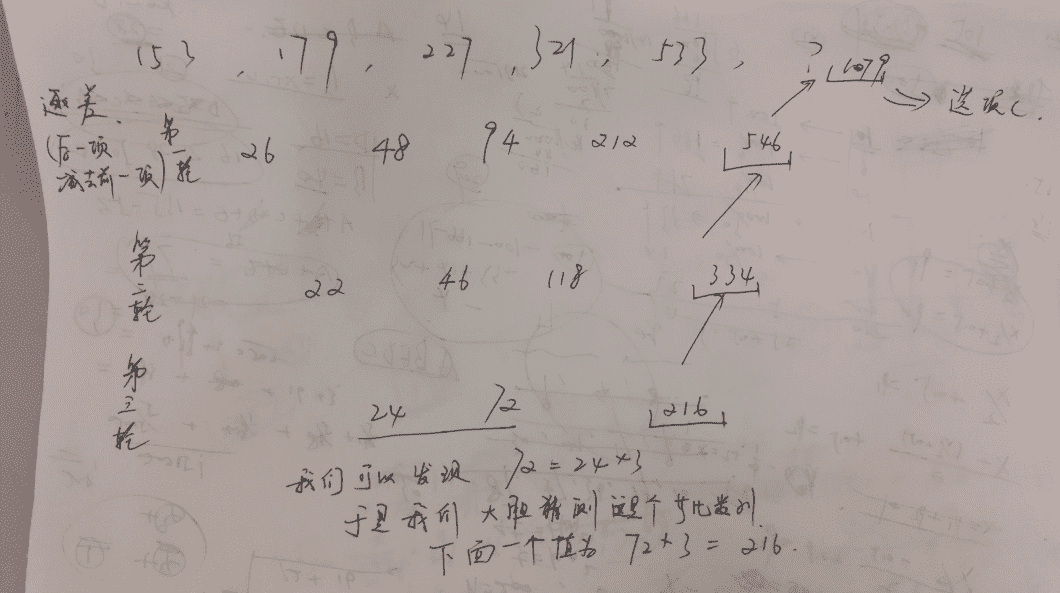 153, 179, 227, 321, 533, ? 1079 => 选项C.
逐差.
(后一项减去前一项) 第一轮 26 48 94 212 546
第二轮 22 46 118 334
第三轮 24 72 216
我们可以发现 72=24×3
于是我们大胆猜测这是个等比数列.
下面一个值为 72×3=216.